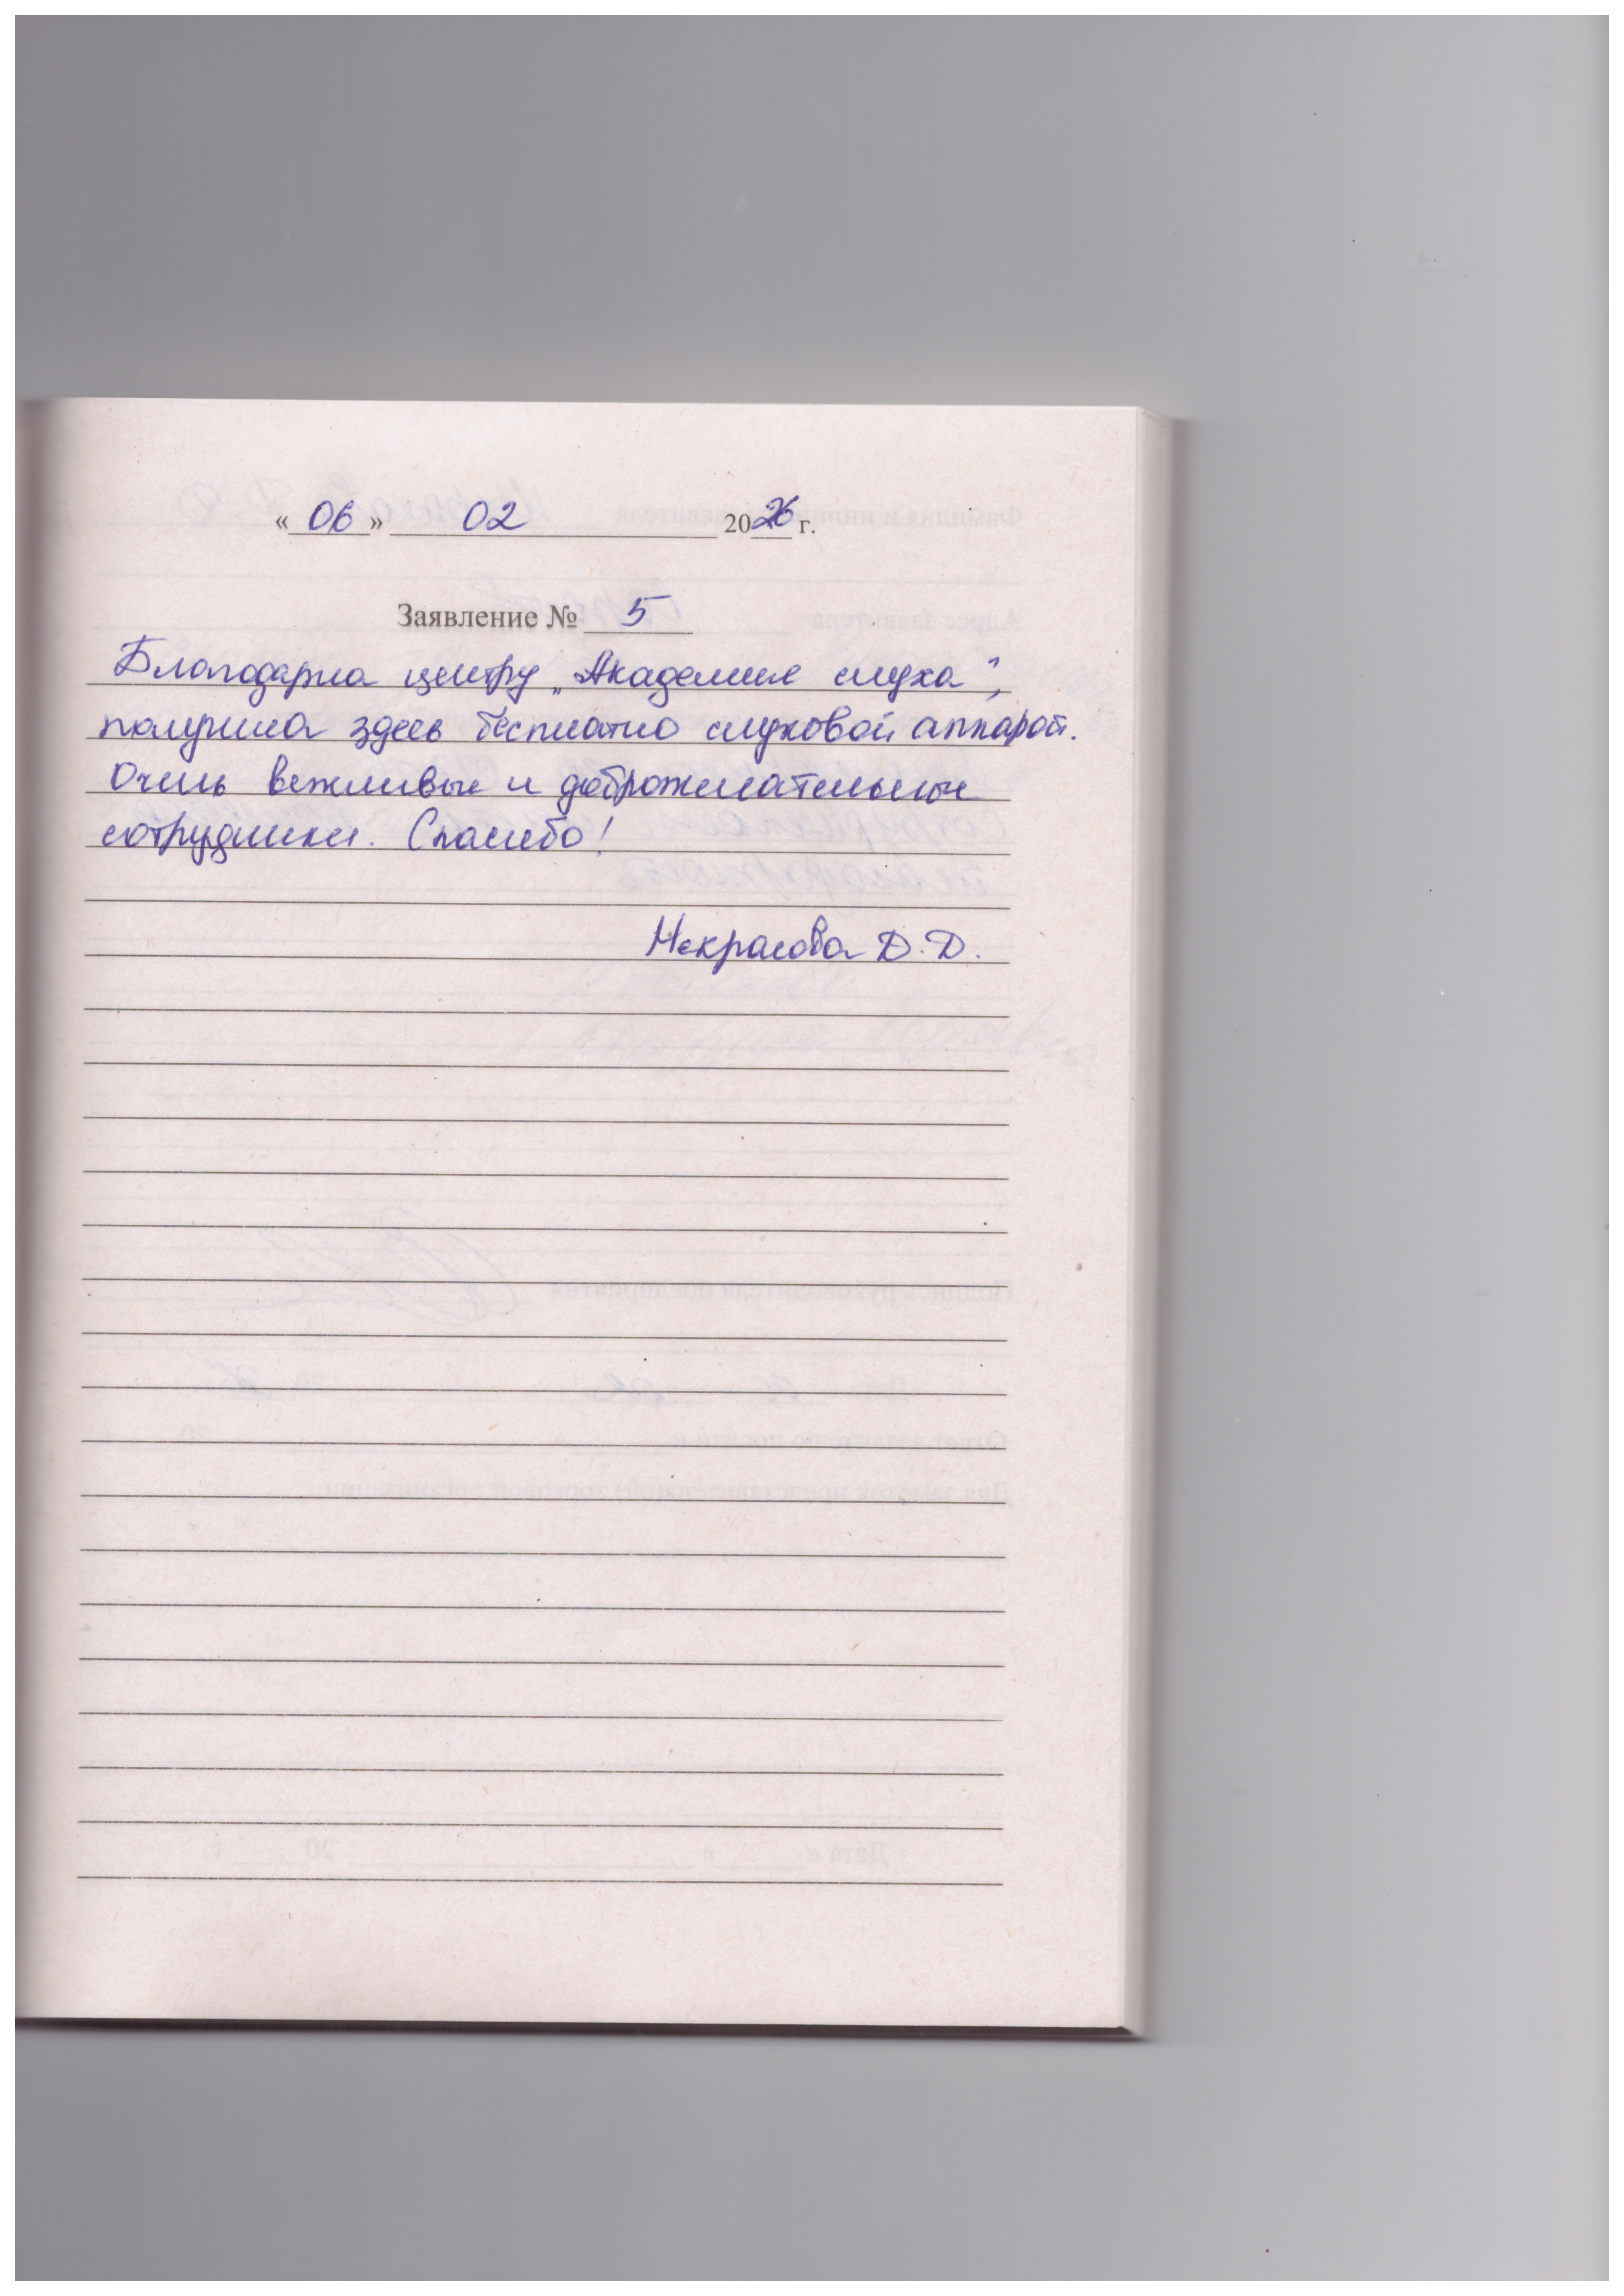 « 06 » 02 2026 г.
Заявление № 5
Благодарна центру „Академия слуха",
получила здесь бесплатно слуховой аппарат.
Очень вежливые и доброжелательные
сотрудники. Спасибо!
Некрасова Д. Д.